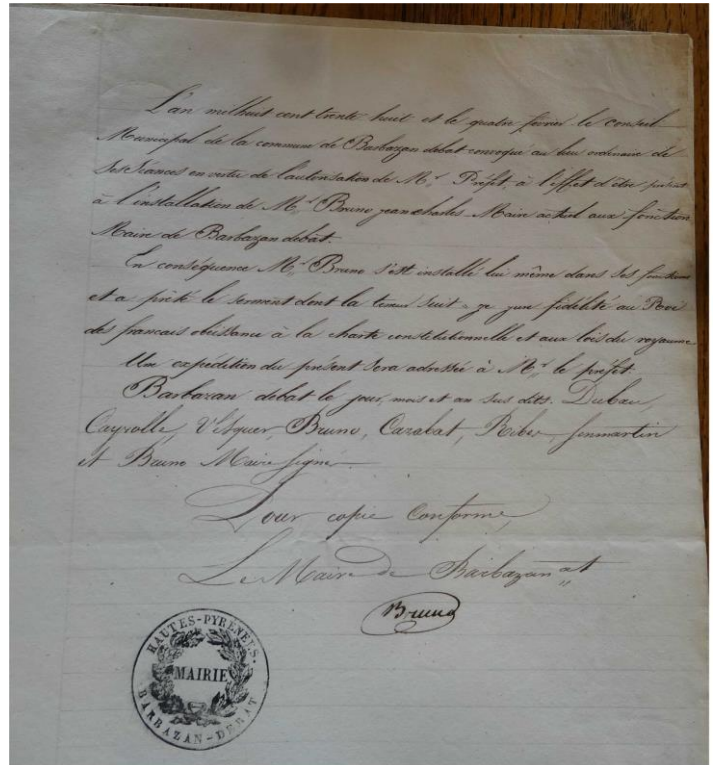 L'an milhuit cent trente huit et le quatre février le conseil
Municipal de la commune de Barbazan debat convoqué au lieu ordinaire de
Ses Séances en vertu de l'autorisation de Mr. Préfet, à l'effet d'être présent
à l'installation de Mr. Bruno jean charles Maire actuel aux fonctions
Maire de Barbazan debat.
En conséquence Mr. Bruno s'est installé lui même dans ses fonctions
et a prêté le serment dont la teneur suit = je jure fidélité au Roi
des francais obéissance à la charte constitutionnelle et aux lois du royaume
Une expédition du présent sera adressée à Mr. le préfet
Barbazan debat le jour, mois et an sus dits.
Cayrolle, Bruno, Cazabat, Ribes, Senmartin
et Bruno Maire signés.
Pour copie Conforme,
Le Maire de Barbazan dt
Bruno
HAUTES-PYRÉNÉES.
MAIRIE
BARBAZAN-DEBAT